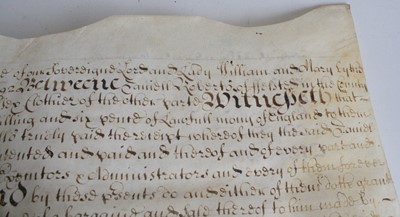 e of our Sovereigne Lord and Lady William and Mary by the
Betweene Daniell Roberts of in the County
Clothier of the other parte Witnesseth that
illing and six pence of Lawfull mony of England to them
truely paid the receipt whereof they the said Daniell
tented and paid and thereof and of every part and
Executors & Administrators and every of them forever
by these psents do and either of them doth grant
bargaine and thereof to him made by